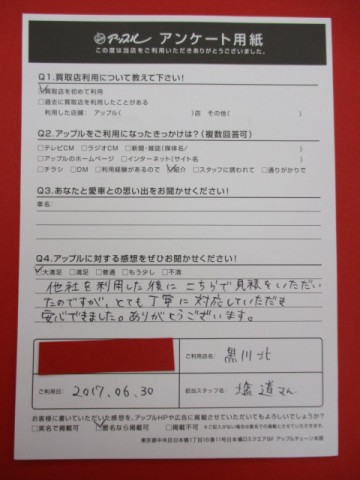 アップル アンケート用紙
この度は当店をご利用いただきありがとうございました。
Q1.買取店利用について教えて下さい!
□買取店を初めて利用
□過去に買取店を利用したことがある
利用した店舗: アップル( )店 その他( )
Q2.アップルをご利用になったきっかけは?(複数回答可)
□テレビCM □ラジオCM □新聞・雑誌(媒体名/ )
□アップルのホームページ □インターネット(サイト名 )
□チラシ □DM □利用経験があるので □紹介 □スタッフに誘われて □通りがかりで
Q3.あなたと愛車との思い出をお聞かせください!
車名:
Q4.アップルに対する感想をぜひお聞かせください!
□大満足 □満足 □普通 □もう少し □不満
他社を利用した後にこちらで見積をいただい
たのですが、とても丁寧に対応していただき
安心できました。ありがとうございます。
ご利用店名: 黒川北
ご利用日: 2017.06.30
担当スタッフ名: 塩道さん
お客様に書いていただいた感想を、アップルHPや広告に掲載させていただいてもよろしいでしょうか?
□実名で掲載可 □匿名なら掲載可 □掲載不可
※ご記入がない場合は匿名での掲載とさせていただきます。
東京都中央区日本橋1丁目16番11号日本橋Dスクエア8F アップルチェーン本部